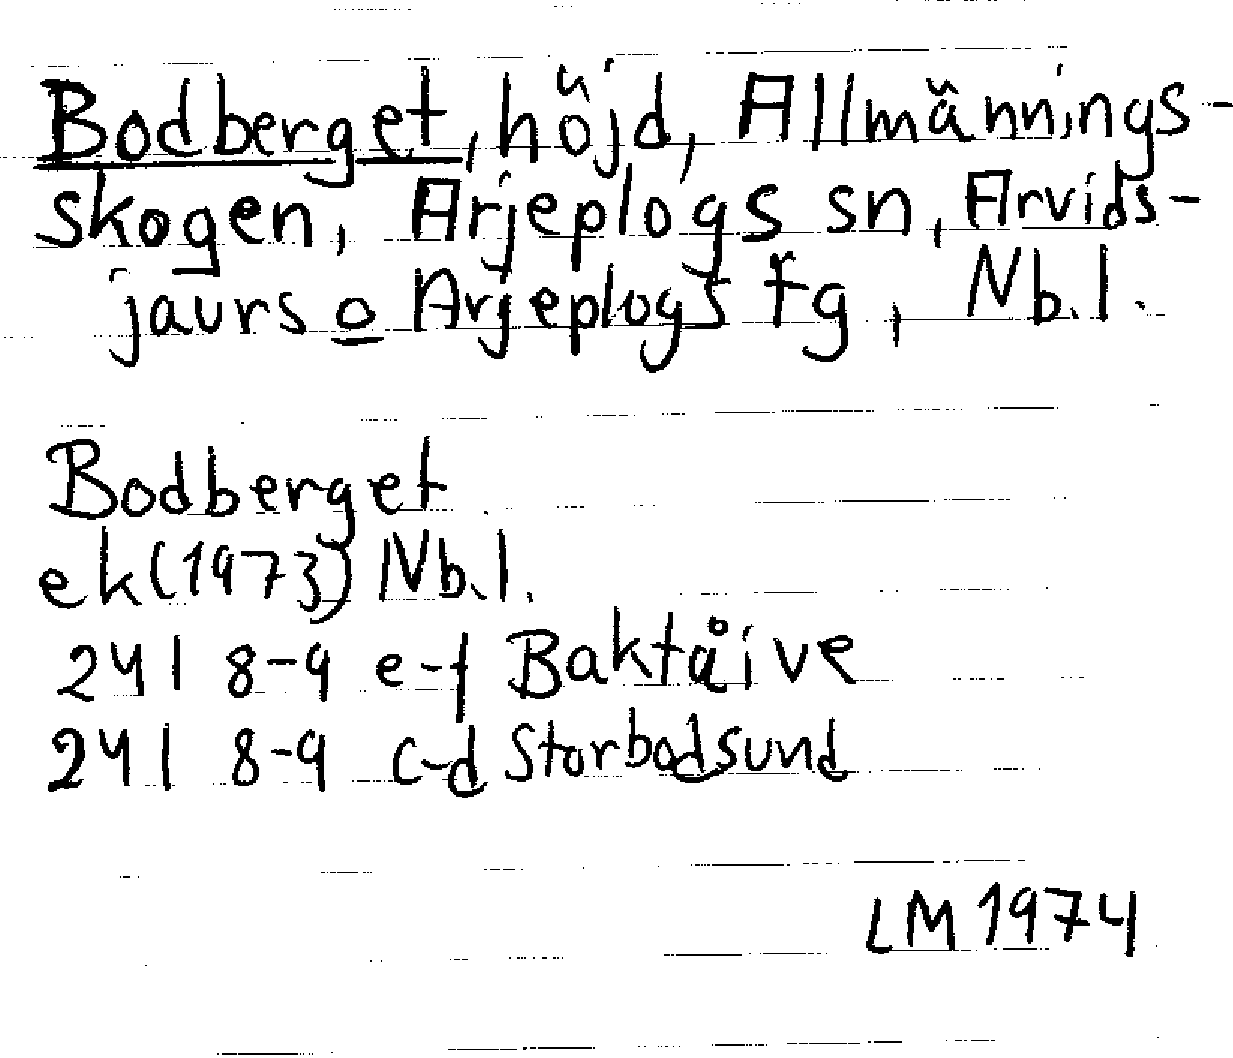 Bodberget, höjd, Allmännings-
skogen, Arjeplogs sn, Arvids-
jaurs o Arjeplogs tg, Nb.l.
Bodberget
ek (1973) Nb.l.
24 I 8-9 e-f Baktåive
24 I 8-9 c-d Storbodsund
LM 1974